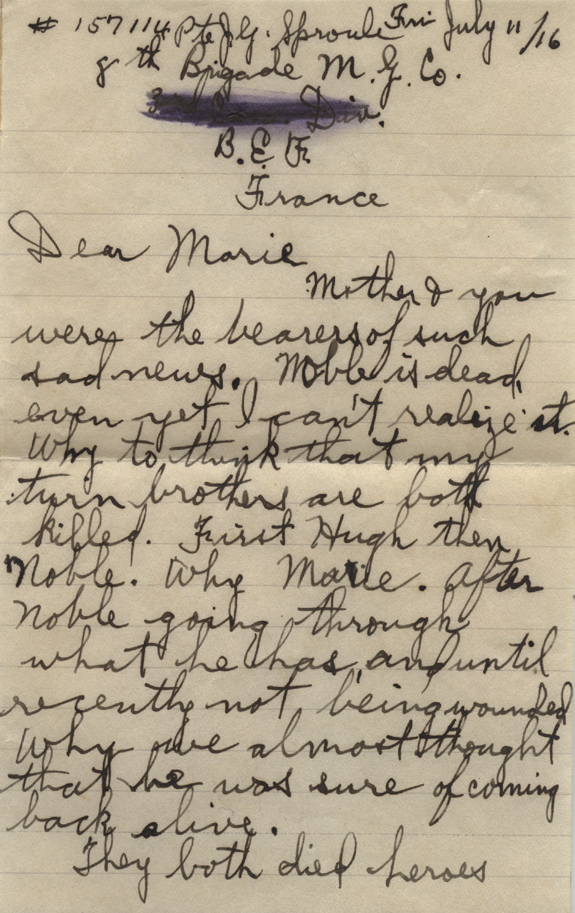 # 157114 Pte J.G. Sproule Fri July 11/16
8th Brigade M.G. Co.
3 Div.
B.E.F.
France
Dear Marie
Mother & you
were the bearers of such
sad news. Noble is dead,
even yet I can't realize it.
Why to think that my
turn brothers are both
killed. First Hugh then
Noble. Why Marie. After
Noble going through
what he has, and until
recently not being wounded
Why we almost thought
that he was sure of coming
back alive.
They both died heroes